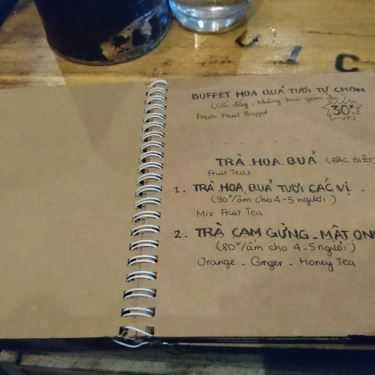 BUFFET HOA QUẢ TƯƠI TỰ CHỌN
Fresh Fruit Buffet
30K
TRÀ HOA QUẢ (ĐẶC BIỆT)
Fruit Teas
1. TRÀ HOA QUẢ TƯƠI CÁC VỊ
(90K/ấm cho 4-5 người)
Mix Fruit Tea
2. TRÀ CAM GỪNG - MẬT ONG
(80K/ấm cho 4-5 người)
Orange - Ginger - Honey Tea